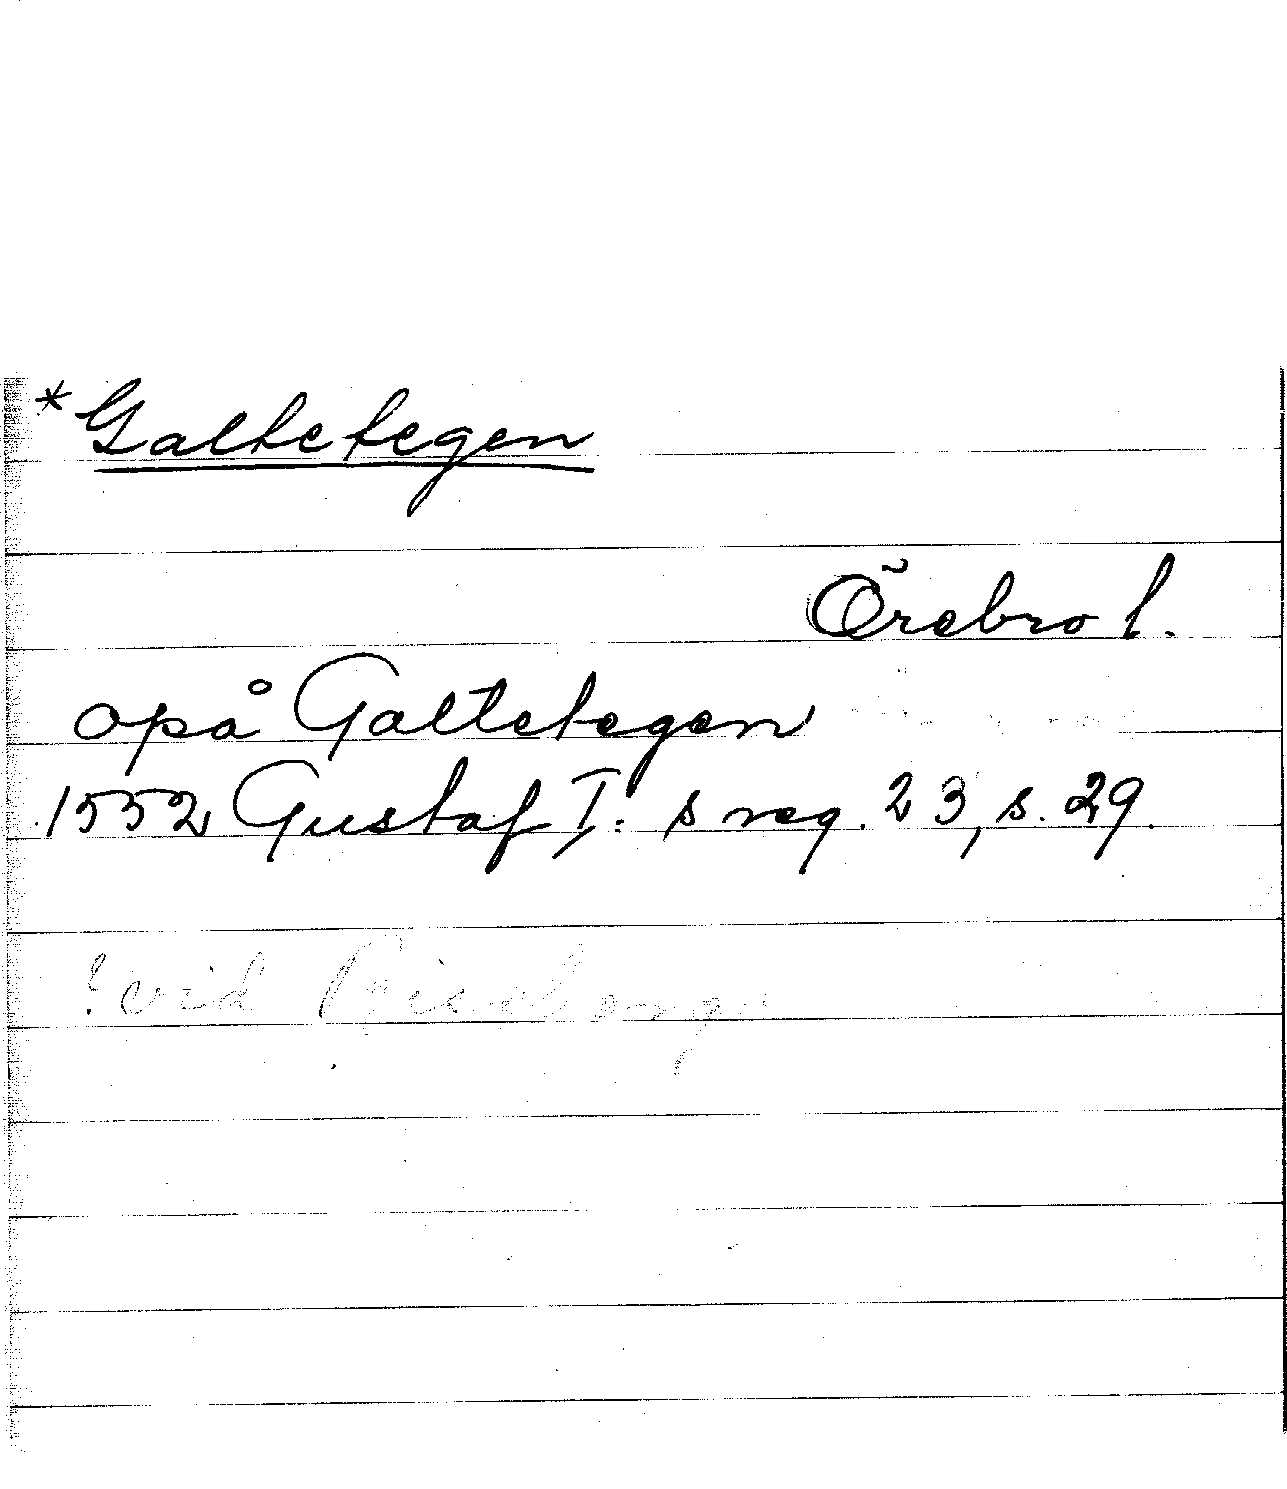 *Galtetegen
Örebro l.
opå Galtetegen
1552 Gustaf I: s reg. 23, s. 29.